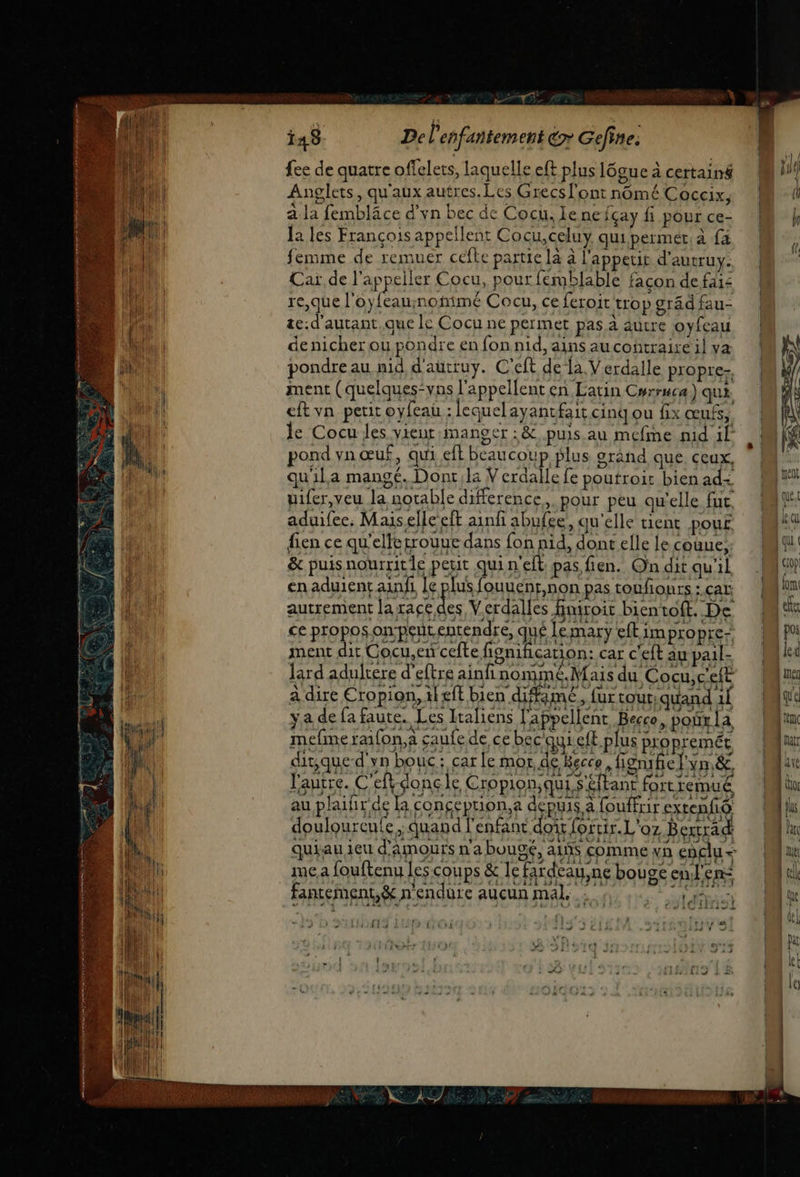 148 De l'enfantement & Gesine.
see de quatre osselets, laquelle est plus lõgue à certains
Anglets, qu'aux autres. Les Grecs l'ont nõmé Coccix,
à la semblãce d'vn bec de Cocu. Ie ne sçay si pour ce-
la les François appellent Cocu, celuy qui permet à sa
femme de remuer ceste partie là à l'appetit d'autruy.
Car de l'appeller Cocu, pour semblable façon de fai-
re, que l'oyseau, nommé Cocu, ce seroit trop grãd fau-
te: d'autant que le Cocu ne permet pas à autre oyseau
denicher ou pondre en son nid, ains au contraire il va
pondre au nid d'autruy. C'est de la Verdalle propre-
ment (quelques-vns l'appellent en Latin Curruca) qui
est vn petit oyseau: lequel ayant fait cinq ou six œufs,
le Cocu les vient manger: & puis au mesme nid il
pond vn œuf, qui est beaucoup plus grand que ceux,
qu'il a mangé. Dont la Verdalle se pourroit bien ad-
uiser, veu la notable difference, pour peu qu'elle fut
aduisee. Mais elle est ainsi abusee, qu'elle tient pour
sien ce qu'elle trouue dans son nid, dont elle le couue,
& puis nourrit le petit qui n'est pas sien. On dit qu'il
en aduient ainsi, le plus souuent, non pas tousiours: car
autrement la race des Verdalles finiroit bientost. De
ce propos on peut entendre, que le mary est impropre-
ment dit Cocu, en ceste signification: car c'est au pail-
lard adultere d'estre ainsi nommé. Mais du Cocu, c'est
à dire Cropion, il est bien diffamé, sur tout, quand il
y a de sa faute. Les Italiens l'appellent Becco, pour la
mesme raison, à cause de ce bec qui est plus propremẽt
dit, que d'vn bouc: car le mot de Becco, signifie l'vn, &
l'autre. C'est donc le Cropion, qui s'estant fort remué
au plaisir de la conception, a depuis à souffrir extensiõ
douloureuse, quand l'enfant doit sortir. L'oz Bertrãd
qui au ieu d'amours n'a bougé, ains comme vn enclu-
me a soustenu les coups & le fardeau, ne bouge en l'en-
fantement, & n'endure aucun mal.